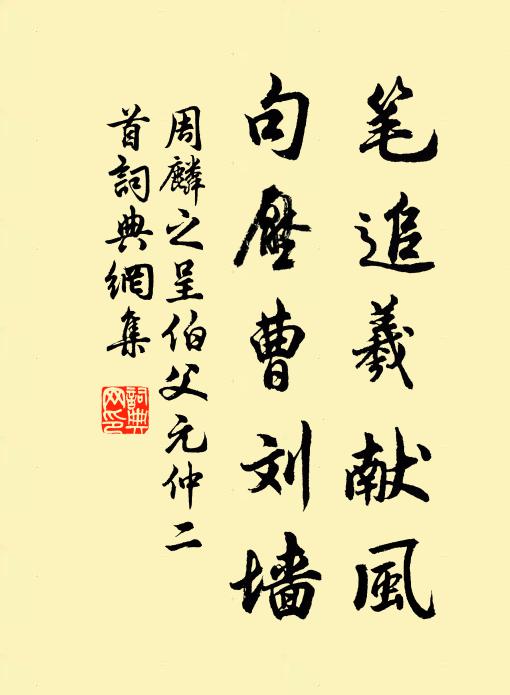 笔追羲献風
句壓曹刘墙
周麟之呈伯父元仲二
首詞典網集
詞典
网印